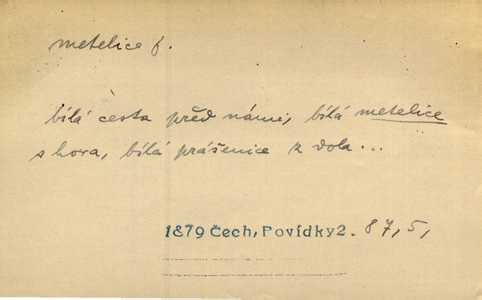 metelice f.
bílá cesta před námi, bílá metelice
s hora, bílá prášenice z dola...
1879 Čech, Povídky 2. 87, 5,